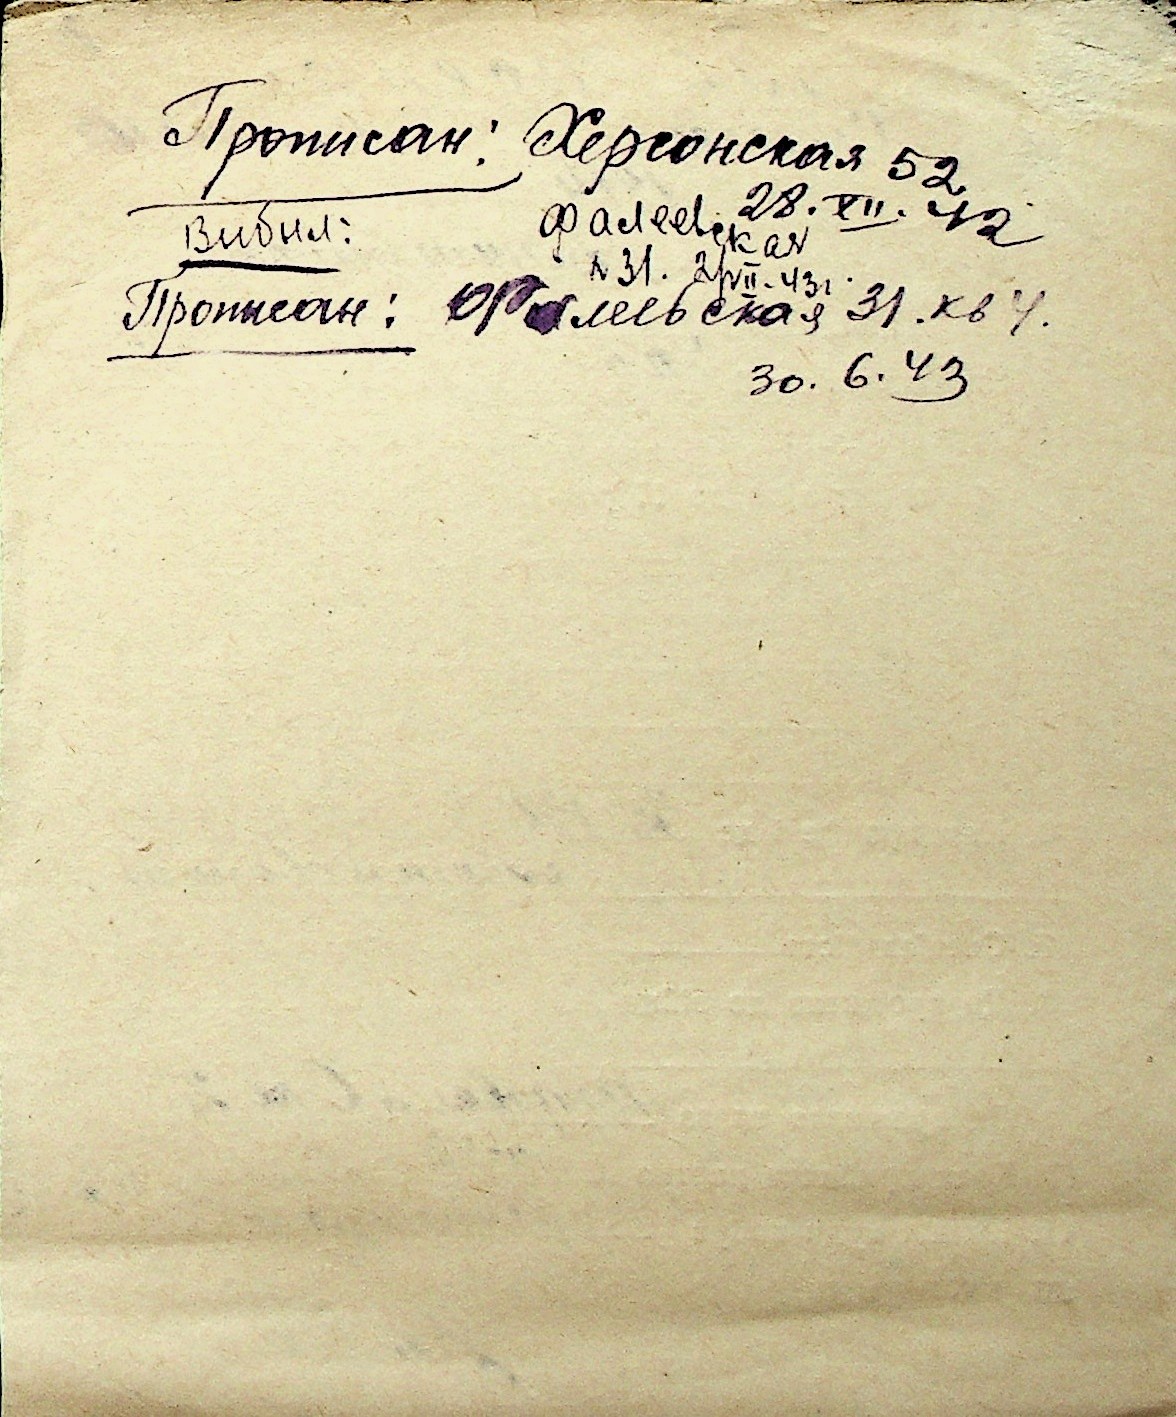 Прописан: Херсонская 52
28. XII. 42
Вибил: Фалеевская
№ 31. 2/VII-43г.
Прописан: Фалеевская 31. кв 4.
30. 6. 43